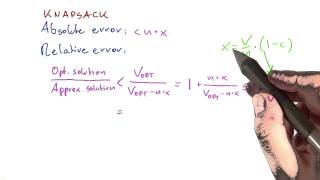 KNAPSACK
Absolute error: < n·x
Relative error:
x = V/n · (1-c)
Opt. solution / Approx solution < V_OPT / V_OPT - n·x = 1 + n·x / V_OPT - n·x
=